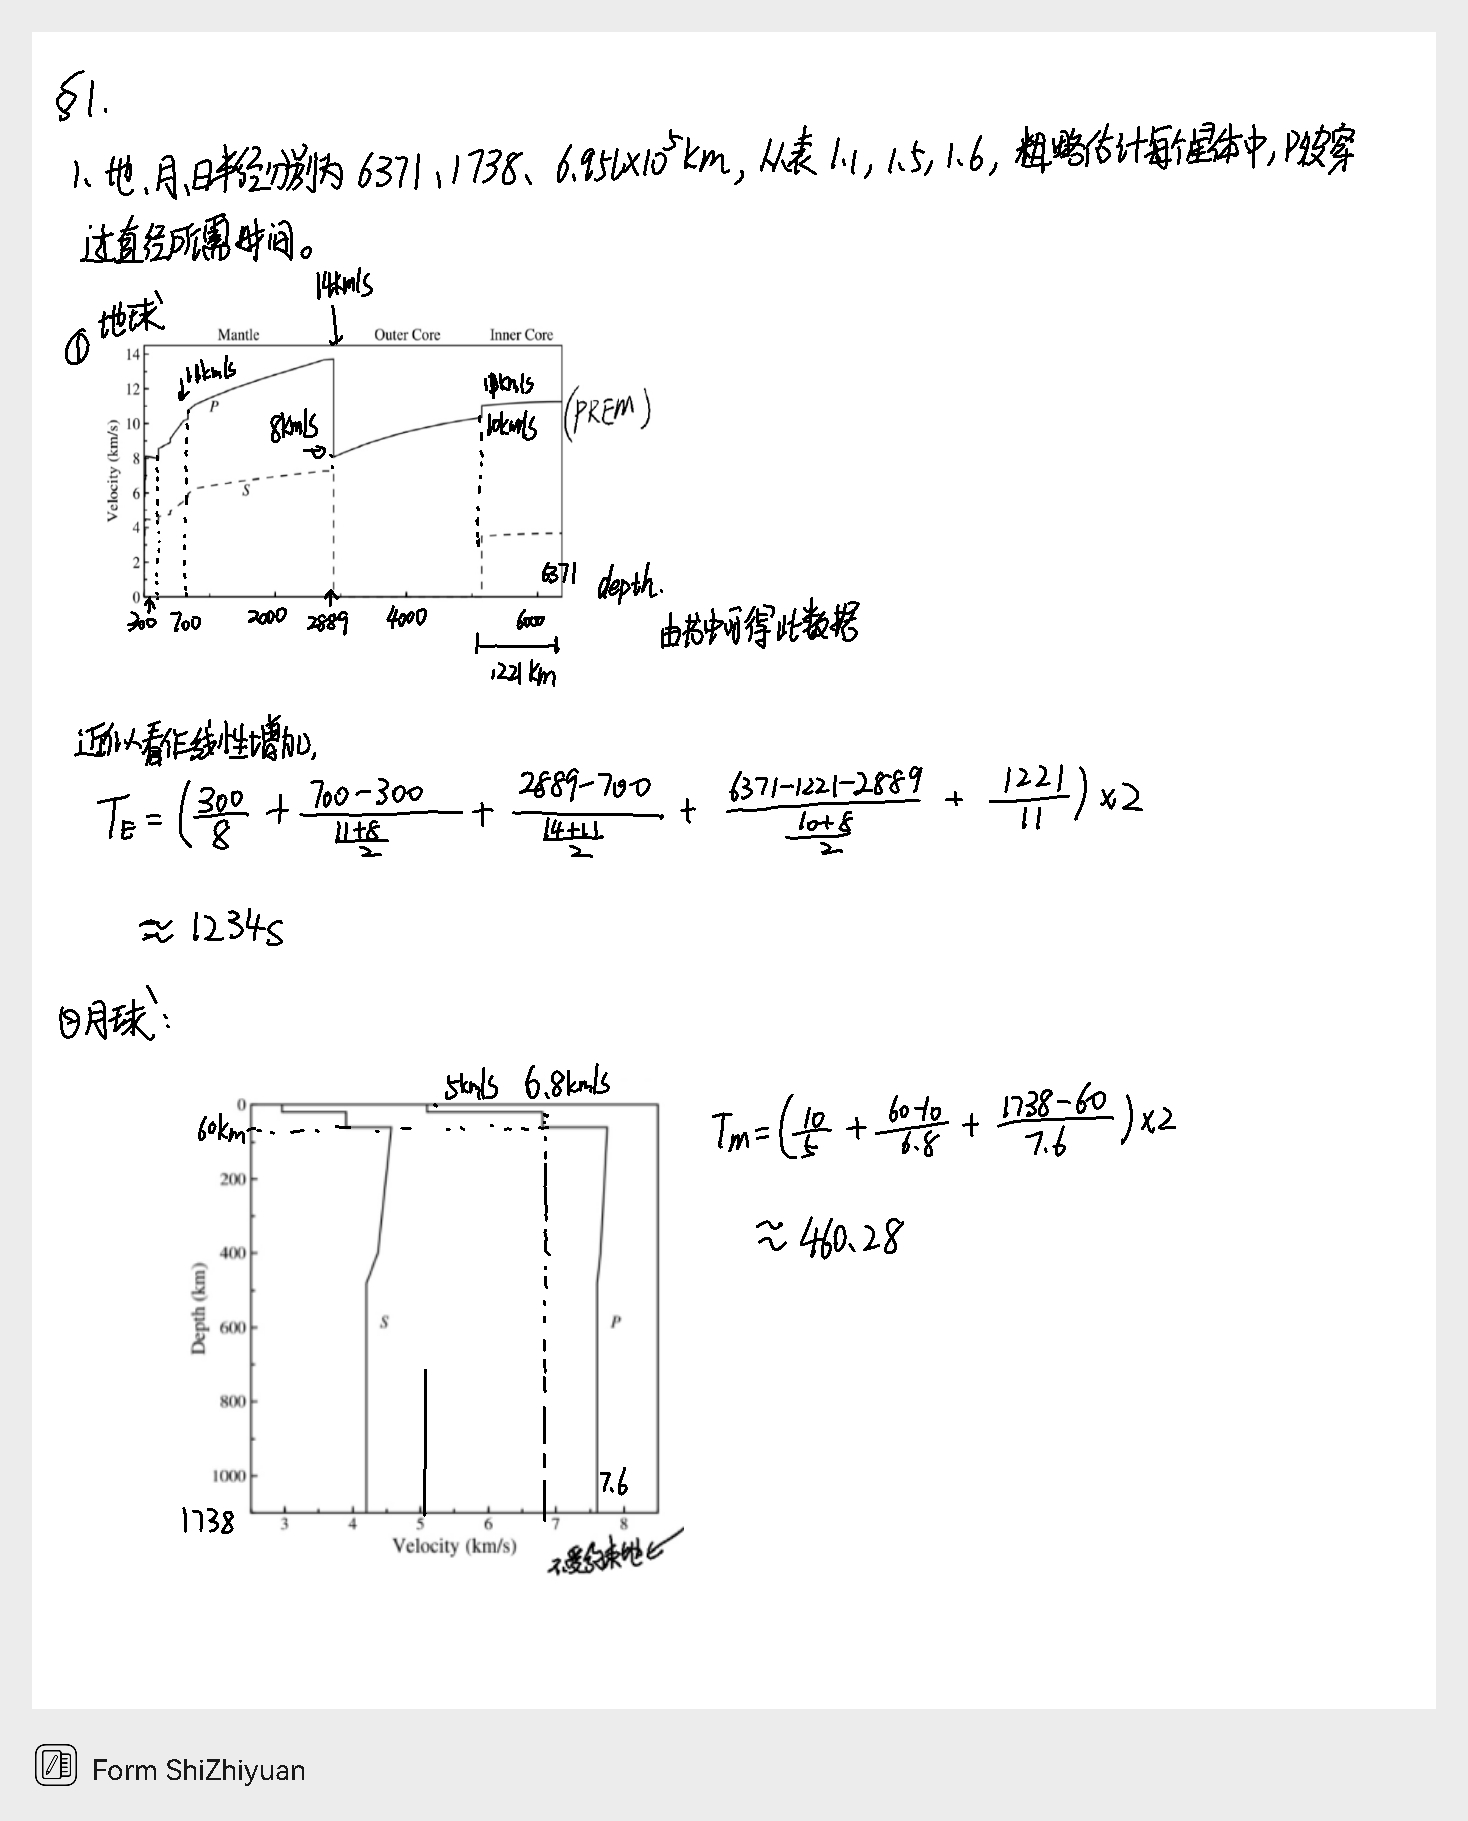 §1.
1、地、月、日半径分别为 6371、1738、6.951x10⁵km, 从表 1.1, 1.5, 1.6, 粗略估计每个星体中, P波穿
过直径所需时间。
① 地球
14km/s
Mantle Outer Core Inner Core
14
12
10
8
6
4
2
0
Velocity (km/s)
11km/s
P
S
8km/s
11km/s
10km/s
(PREM)
6371 depth.
300 700 2000 2889 4000 6000
1221 km
由书中可得此数据
近似看作线性增加,
T_E = (300/8 + (700-300)/((11+8)/2) + (2889-700)/((14+11)/2) + (6371-1221-2889)/((10+8)/2) + 1221/11) x2
≈ 1234s
②月球:
5km/s 6.8km/s
0
60km
200
400
600
800
1000
1738
Depth (km)
S
P
7.6
3 4 5 6 7 8
Velocity (km/s)
T_m = (10/5 + (60-10)/6.8 + (1738-60)/7.6) x2
≈ 460.28
Form ShiZhiyuan